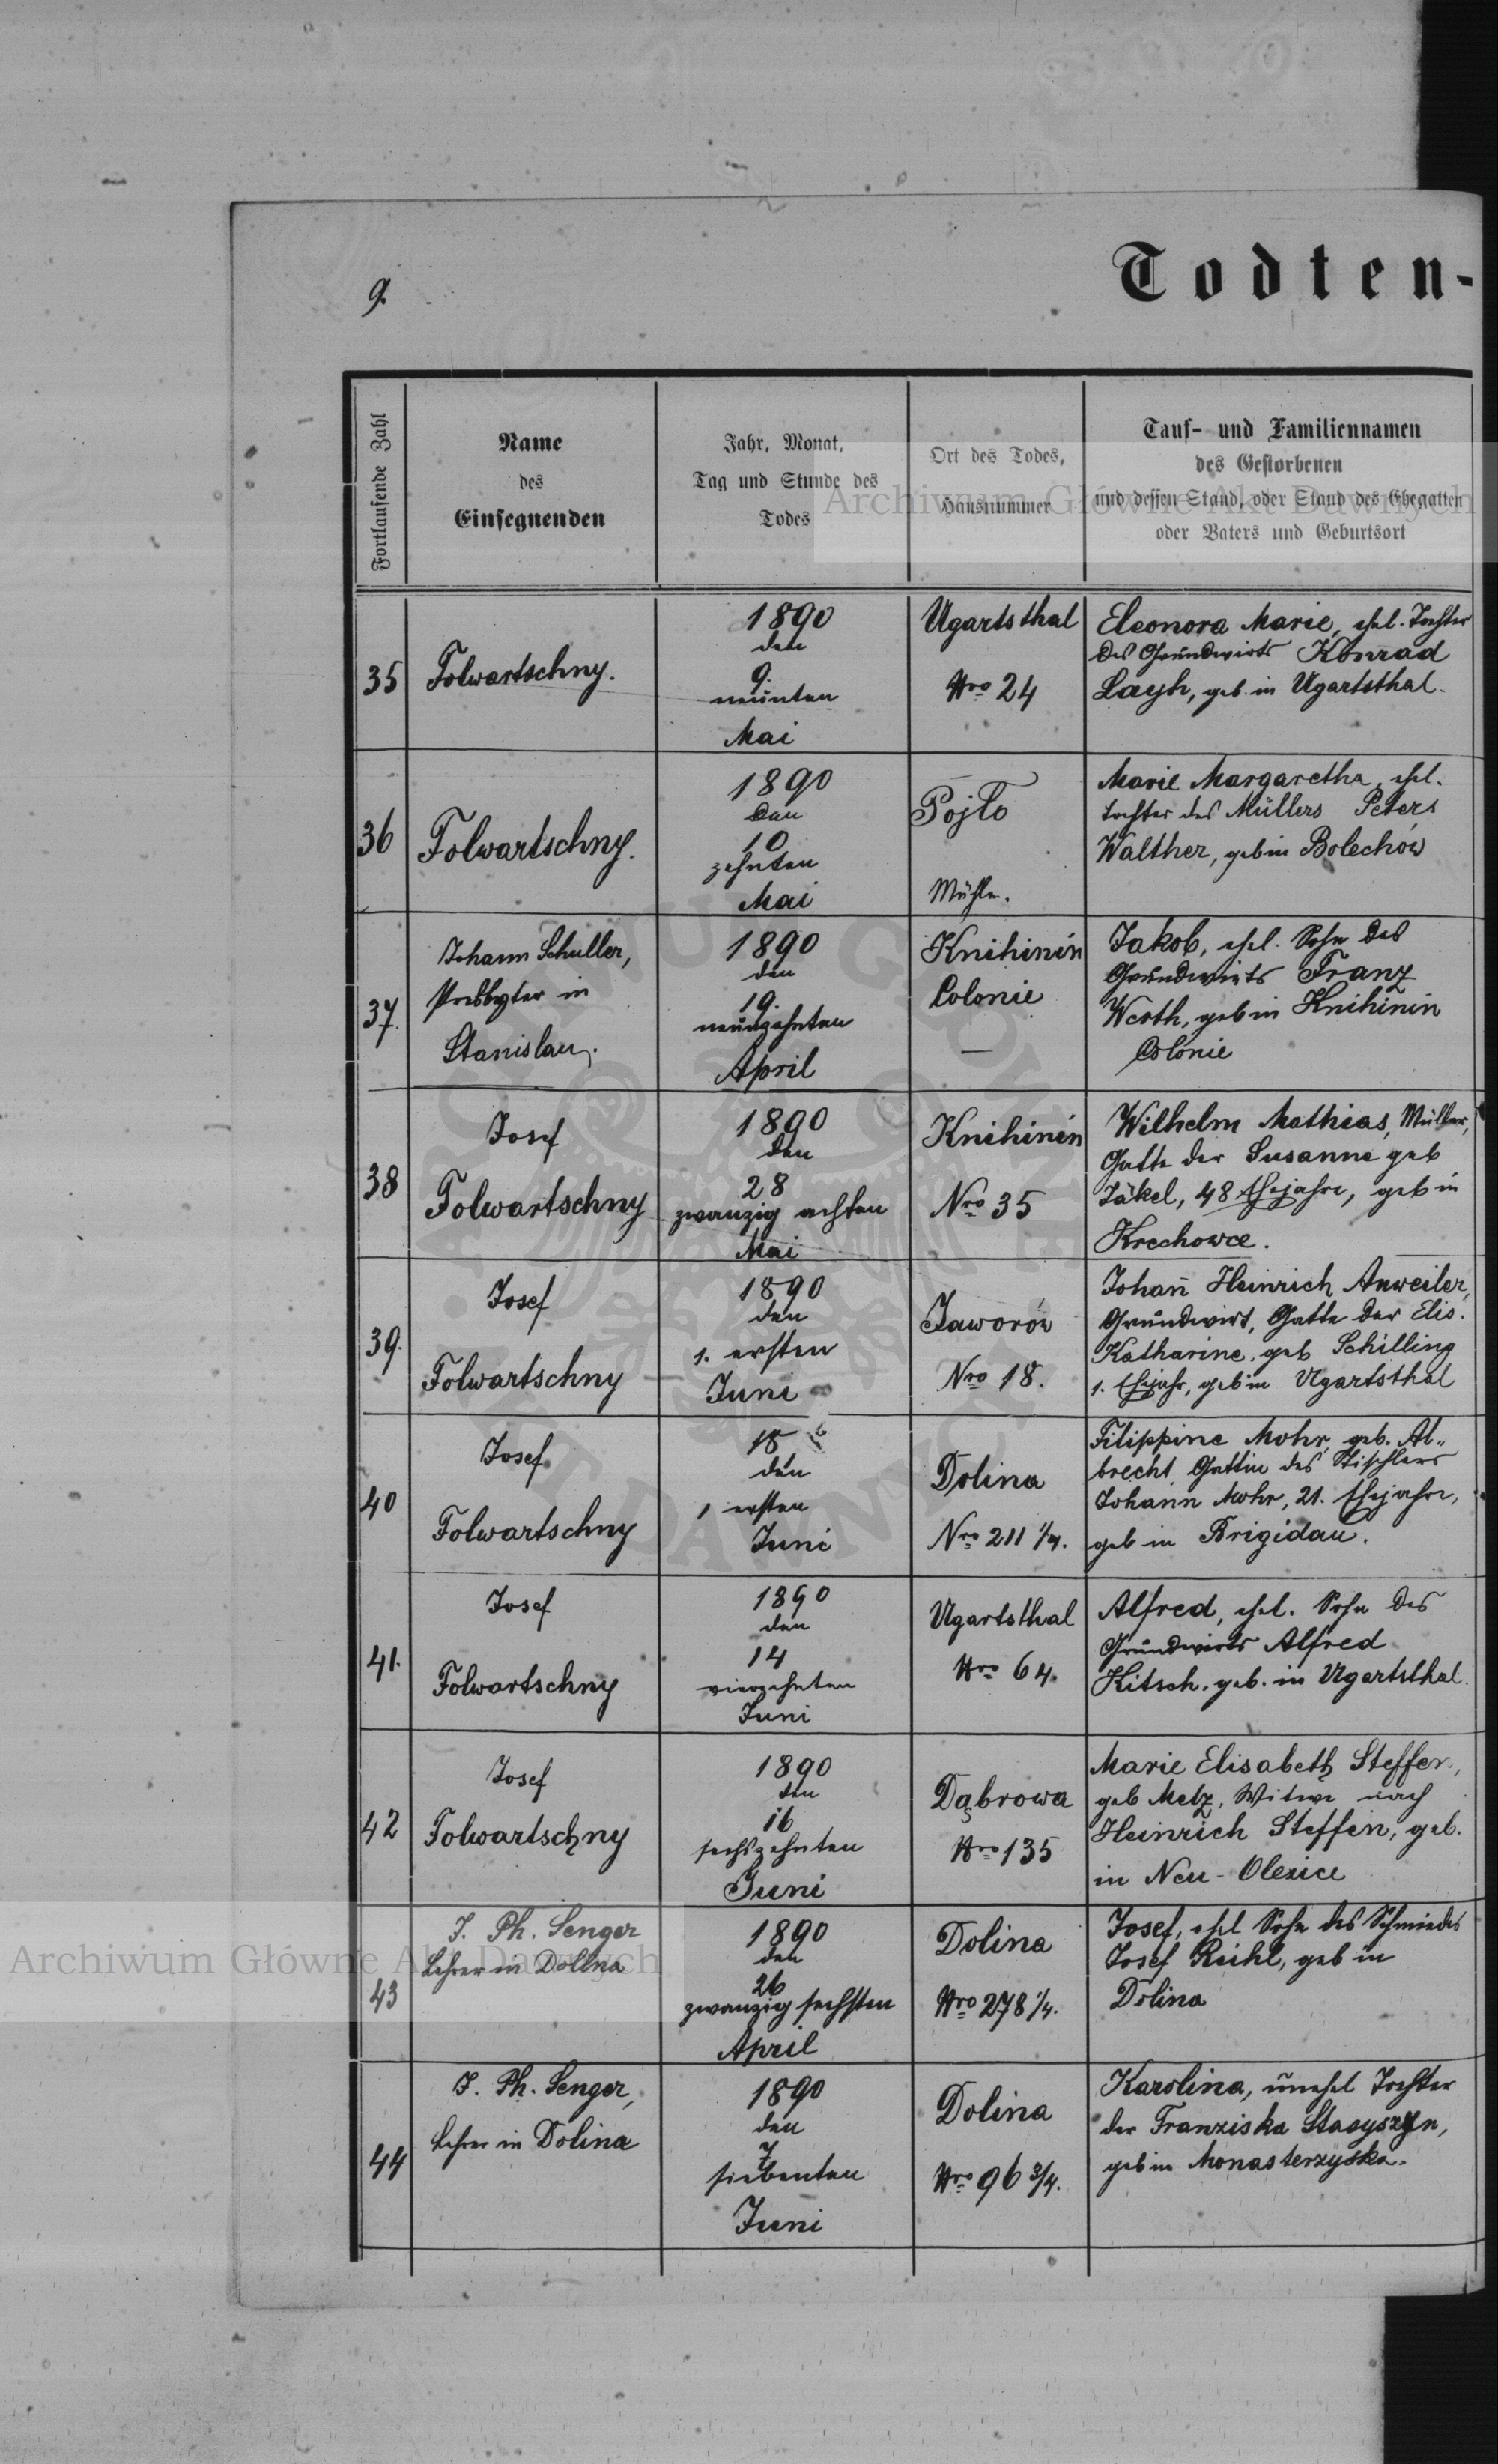 9.
Todten-
Fortlaufende Zahl
Name
des
Einsegnenden
Jahr, Monat,
Tag und Stunde des
Todes
Ort des Todes,
Hausnummer
Tauf- und Familiennamen
des Gestorbenen
und dessen Stand, oder Stand des Ehegatten
oder Vaters und Geburtsort
Archiwum Główne Akt Dawnych
35
Folwartschny.
1890
den
9.
neunten
Mai
Ugartsthal
Nro 24
Eleonora Marie, ehel. Tochter
des Grundwirts Konrad
Layh, geb. in Ugartsthal.
36
Folwartschny.
1890
den
10
zehnten
Mai
Pojło
Mühle.
Marie Margaretha, ehel.
Tochter des Müllers Peters
Walther, geb in Bolechów
37.
Johann Schuller,
Presbyter in
Stanislau.
1890
den
19.
neunzehnten
April
Knihinin
Colonie
—
Jakob, ehel. Sohn des
Grundwirts Franz
Werth, geb in Knihinin
Colonie
38
Josef
Folwartschny
1890
den
28
zwanzig achten
Mai
Knihinin
Nro 35
Wilhelm Mathias, Müller,
Gatte der Susanne geb
Jäkel, 48 Ehejahre, geb in
Krechowce.
39.
Josef
Folwartschny
1890
den
1. ersten
Juni
Jaworów
Nro 18.
Johañ Heinrich Anweiler,
Grundwirt, Gatte der Elis.
Katharine, geb Schilling
1. Ehejahr, geb in Ugartsthal
40
Josef
Folwartschny
18
den
1 ersten
Juni
Dolina
Nro 211 1/4.
Filippine Mohr, geb. Al„
brecht, Gattin des Tischlers
Johann Mohr, 21. Ehejahre,
geb in Brigidau.
41.
Josef
Folwartschny
1890
den
14
vierzehnten
Juni
Ugartsthal
Nro 64.
Alfred, ehel. Sohn des
Grundwirts Alfred
Kitsch, geb. in Ugartsthal.
42
Josef
Folwartschny
1890
den
16
sechszehnten
Juni
Dąbrowa
Nro 135
Marie Elisabeth Steffen,
geb Metz, Witwe nach
Heinrich Steffen, geb.
in Neu-Olexice
43
J. Ph. Senger
Lehrer in Dolina
1890
den
26
zwanzig sechsten
April
Dolina
Nro 278 1/4.
Josef, ehel Sohn des Schmiedes
Josef Reihl, geb in
Dolina
Archiwum Główne Akt Dawnych
44
J. Ph. Senger,
Lehrer in Dolina
1890
den
7
siebenten
Juni
Dolina
Nro 96 3/4.
Karolina, unehel Tochter
der Franziska Stasyszyn,
geb in Monasterzyska.
ARCHIWUM GŁÓWNE AKT DAWNYCH